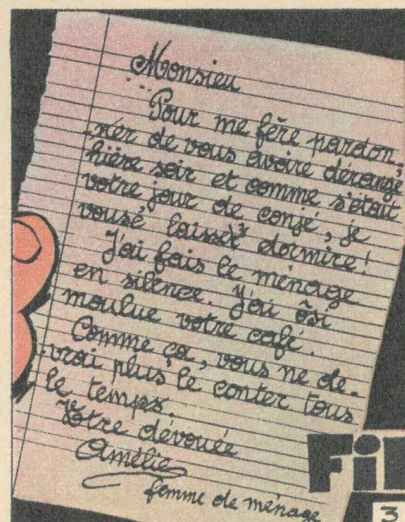 Monsieu
Pour me fêre pardon-
ner de vous avoire dérangé
hière soir et comme s'était
votre jour de conjé, je
vousé laissé dormire!
J'ai fais le ménage
en silence. J'ai ôsi
moulue votre café.
Comme ça, vous ne de-
vrai plus le conter tous
le temps.
Votre dévouée
Amélie
femme de ménage
Fi
3